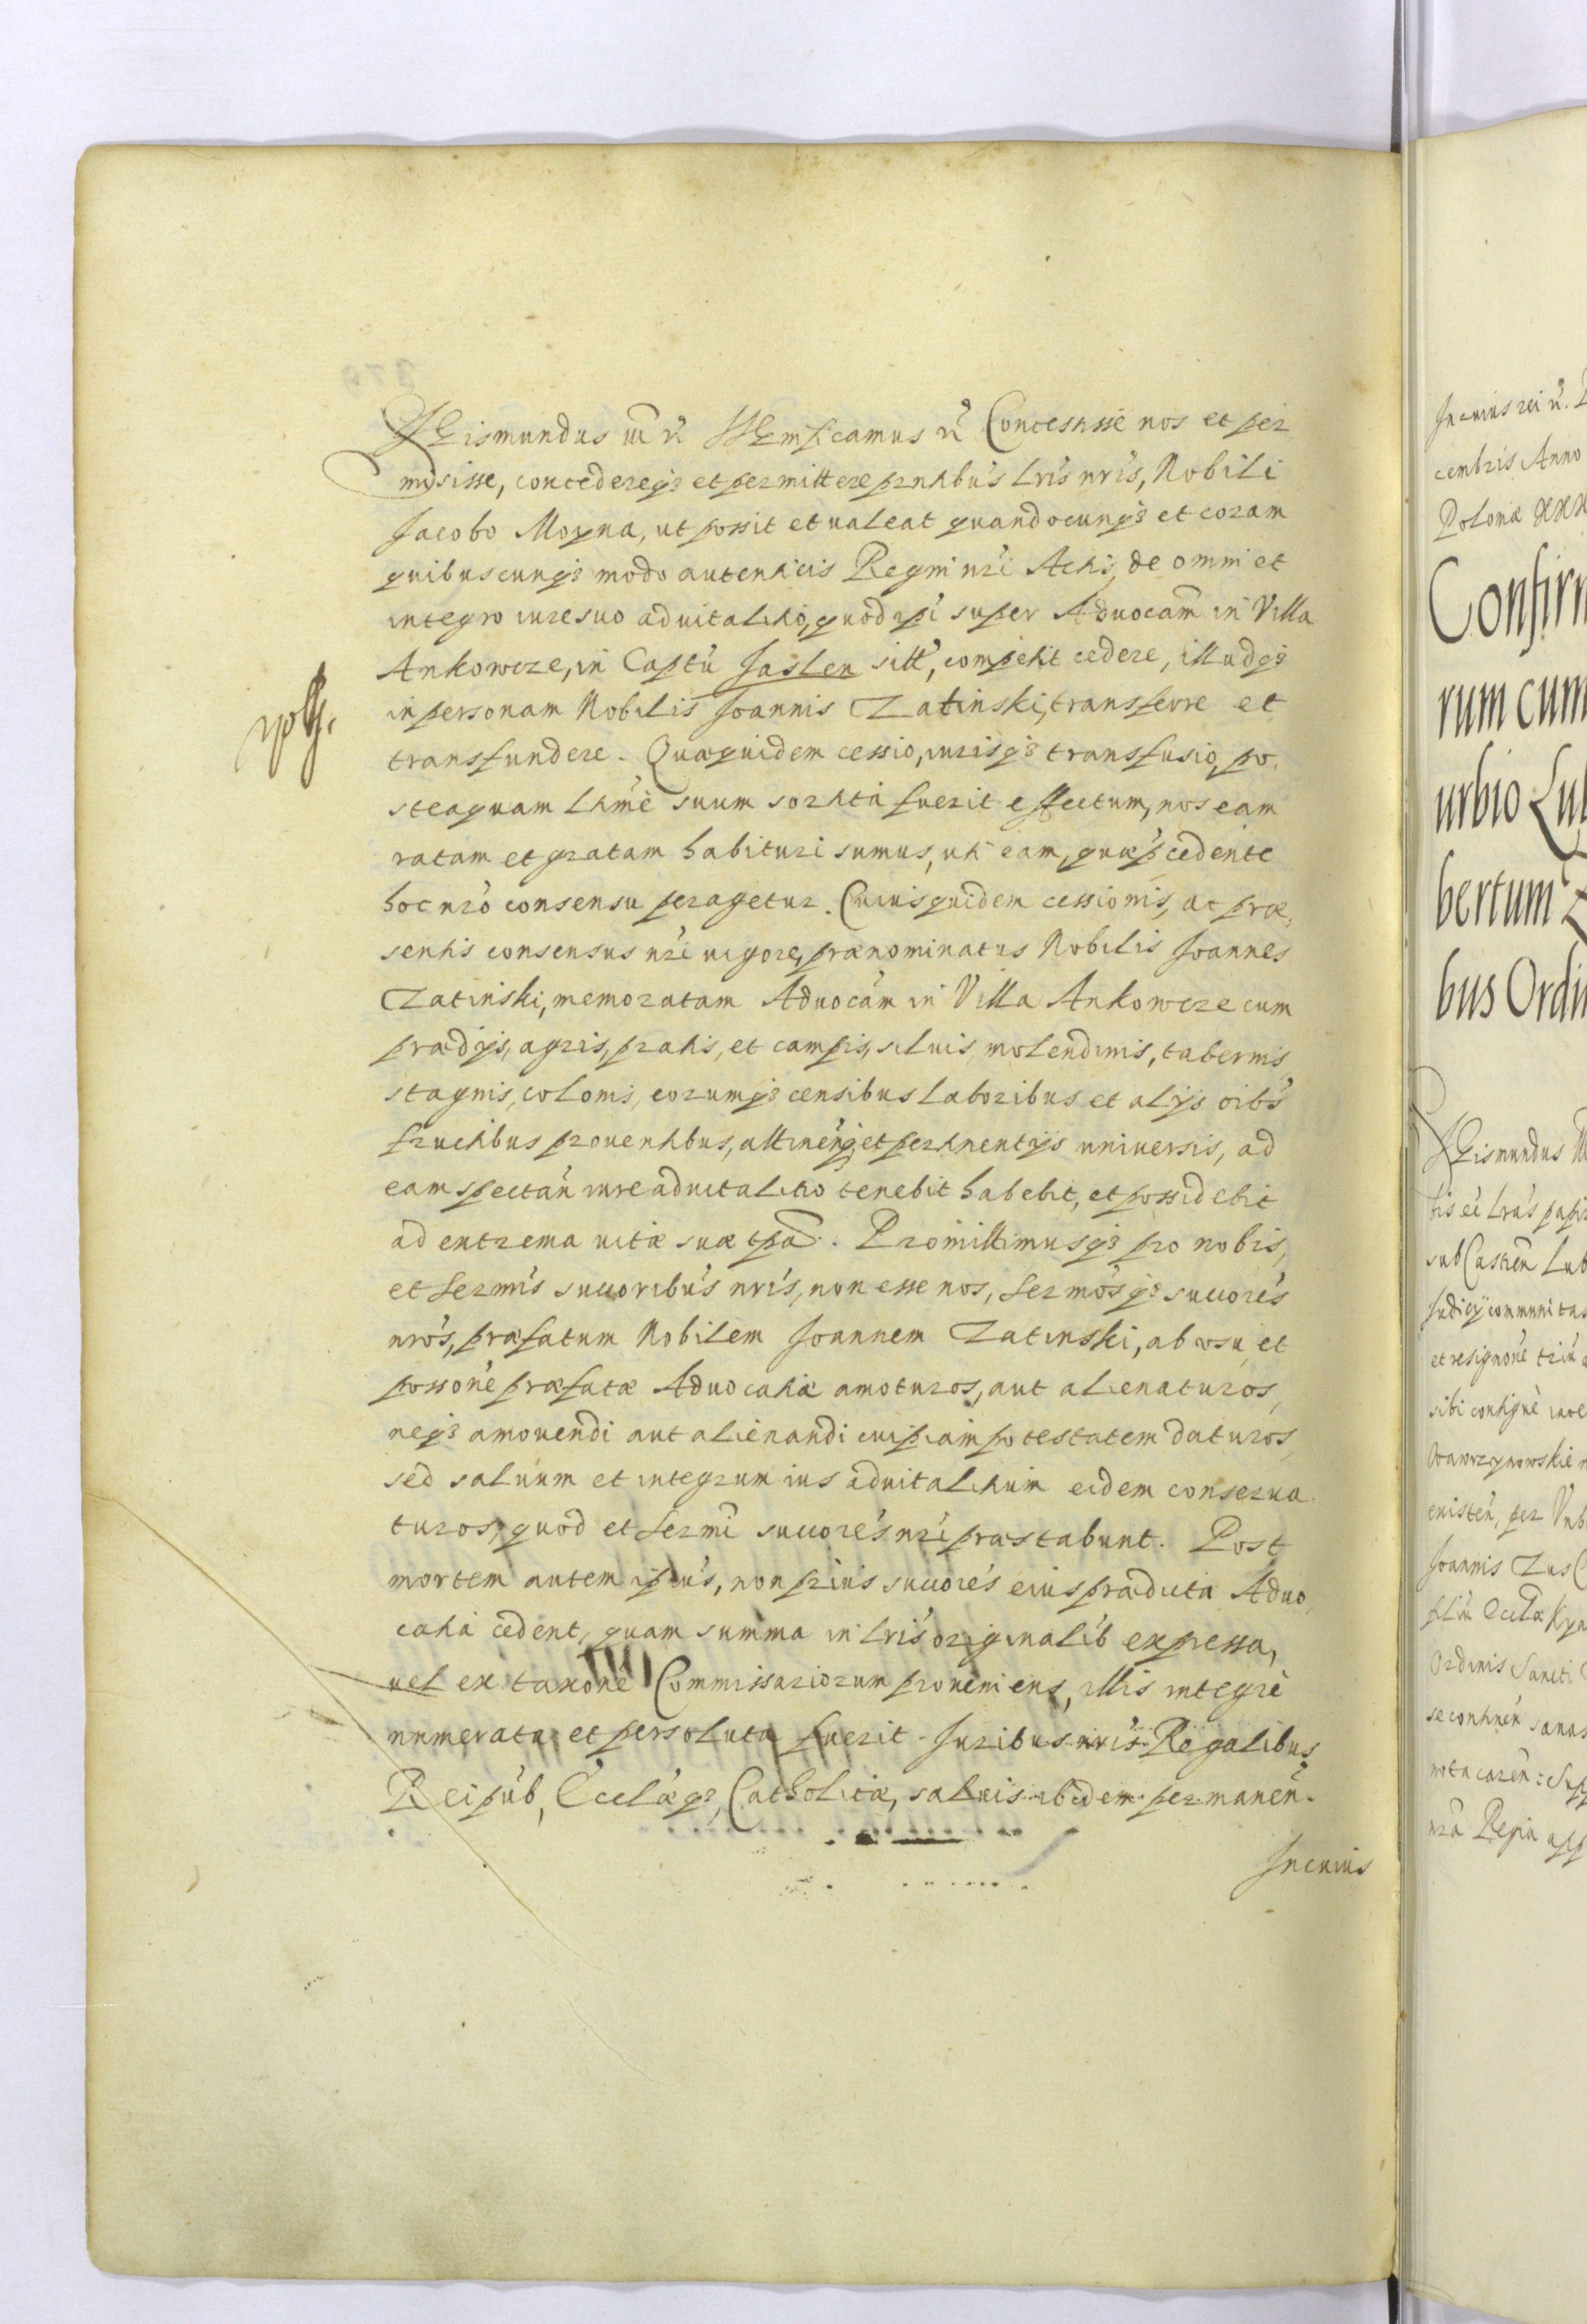 Sigismundus III etc. Significamus etc. Concessisse nos et per
misisse, concedereq3 et permittere prntibus lris nris, Nobili
Jacobo Moyna, ut possit et ualeat quandocunq3 et coram
quibuscunq3 modo autenticis Regni nri Actis, de omni et
integro iure suo aduitalitio, quod ipi super Aduocam in Villa
Ankowcze, in Captu Jaslen sitt, competit cedere, illudq3
in personam Nobilis Joannis Zatinski, transferre et
transfundere. Quaequidem cessio, iurisq3 transfusio, po
steaquam ltime suum sortita fuerit effectum, nos eam
ratam et gratam habituri sumus, uti eam, quae pcedente
hoc nro consensu peragetur. Cuiusquidem cessionis, ac prae
sentis consensus nri uigore, praenominatus Nobilis Joannes
Zatinski, memoratam Aduocam in Villa Ankowcze cum
praedijs, agris, pratis, et campis, siluis, molendinis, tabernis
stagnis, colonis, eorumq3 censibus laboribus et alijs oibs
fructibus prouentibus, attinen, et pertinentijs uniuersis, ad
eam spectan iure aduitalitio tenebit habebit, et possidebit
ad extrema uitae suae tpa. Promittimusq3 pro nobis,
et Sermis succoribus nris, non esse nos, Sermosq3 succores
nros, praefatum Nobilem Joannem Zatinski, ab usu, et
possone praefatae Aduocatiae amoturos, aut alienaturos,
neq3 amouendi aut alienandi cuipiam potestatem daturos,
sed saluum et integrum ius aduitalitium eidem conserua
turos, quod et Sermi succores nri praestabunt. Post
mortem autem ipius, non prius succores eius praedicta Aduo
catia cedent, quam summa in lris originalib expressa,
uel ex taxone Commissariorum proueniens, illis integre
numerata et persoluta fuerit. Juribus nris Regalibus
Reipub, Ecclaeq3, Catholicae, saluis ibidem permanen.
In cuius
In cuius rei etc.
cembris Anno
Poloniae XXX
Confirm
rum cum
urbio Lub
bertum
bus Ordi
Sigismundus
sub Castren Lub
Judicij communitas
et resignone
sibi contigue
Joannis
Ordinis Sancti
nra Regia